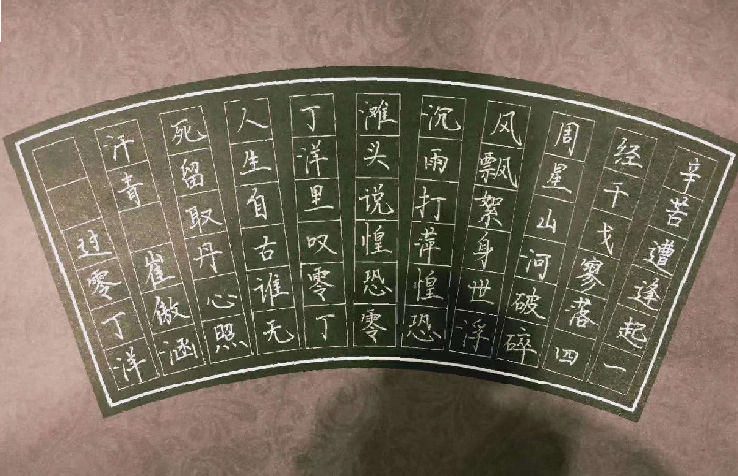 辛苦遭逢起一
经干戈寥落四
周星山河破碎
风飘絮身世浮
沉雨打萍惶恐
滩头说惶恐零
丁洋里叹零丁
人生自古谁无
死留取丹心照
汗青 崔傲涵
过零丁洋